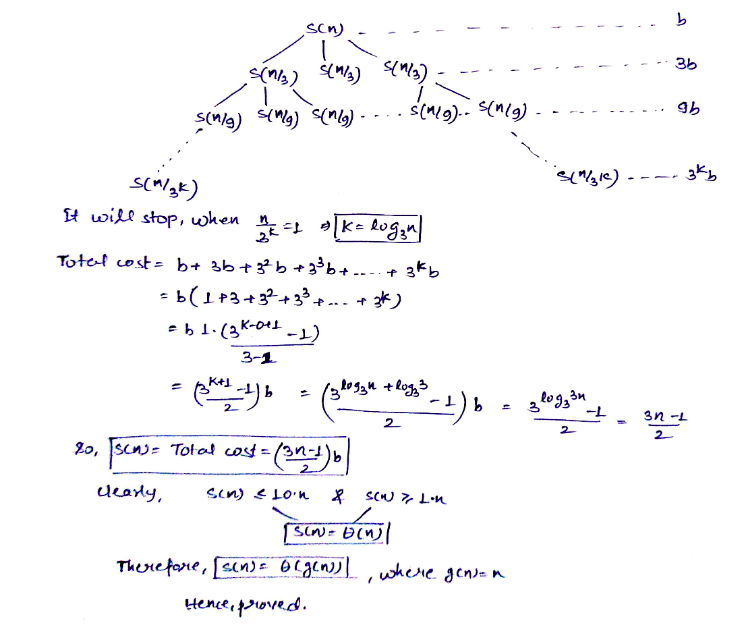 S(n) - - - - - - - - - b
S(n/3) S(n/3) S(n/3) - - - - - - - 3b
S(n/9) S(n/9) S(n/9) - .... S(n/9) .. S(n/9) - - - - - - 9b
S(n/3^k) S(n/3^k) - - - - 3^k b
It will stop, when n/3^k = 1 ⇒ k = log₃n
Total cost = b + 3b + 3²b + 3³b + .... + 3^k b
= b(1 + 3 + 3² + 3³ + ... + 3^k)
= b 1·(3^(k-0+1) - 1)/(3-1)
= ((3^(k+1) - 1)/2) b = ((3^(log₃n + log₃3) - 1)/2) b = (3^(log₃3n) - 1)/2 = (3n - 1)/2
So, S(n) = Total cost = ((3n-1)/2) b
clearly, S(n) ≤ 10·n & S(n) ≥ 1·n
S(n) = θ(n)
Therefore, S(n) = θ(g(n)), where g(n) = n
Hence, proved.